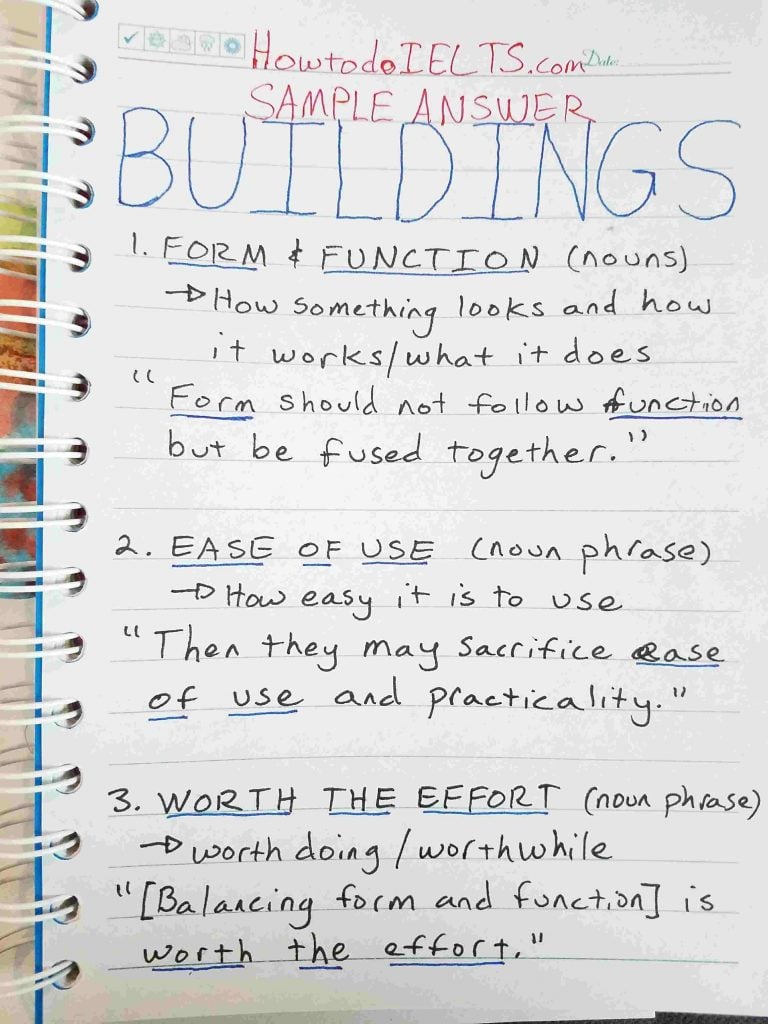 HowtodoIELTS.com Date:
SAMPLE ANSWER
BUILDINGS
1. FORM & FUNCTION (nouns)
→ How something looks and how
it works/what it does
"Form should not follow function
but be fused together."
2. EASE OF USE (noun phrase)
→ How easy it is to use
"Then they may sacrifice ease
of use and practicality."
3. WORTH THE EFFORT (noun phrase)
→ worth doing/worthwhile
"[Balancing form and function] is
worth the effort."